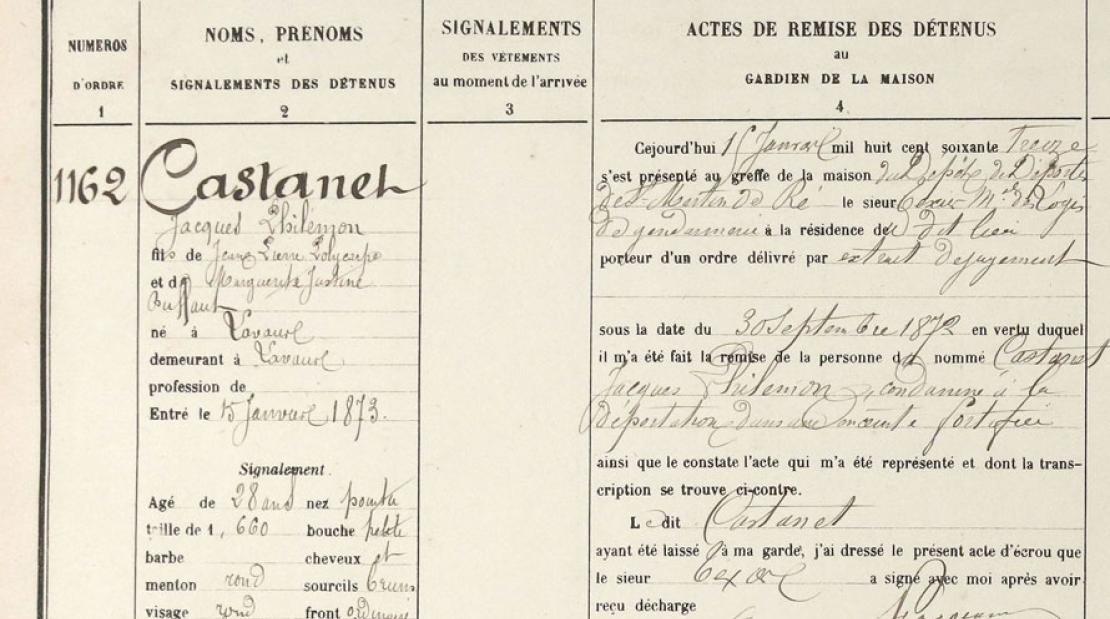 NUMEROS
D'ORDRE
1
NOMS, PRÉNOMS
et
SIGNALEMENTS DES DÉTENUS
2
SIGNALEMENTS
DES VÊTEMENTS
au moment de l'arrivée
3
ACTES DE REMISE DES DÉTENUS
au
GARDIEN DE LA MAISON
4
1162
Castanet
Jacques Philémon
fils de Jean Pierre Polycarpe
et de Marguerite Justine
né à Lavaur
demeurant à Lavaur
profession de
Entré le 15 Janvier 1873.
Signalement.
Agé de 28 ans nez pointu
taille de 1, 660 bouche petite
barbe cheveux et
menton rond sourcils bruns
visage rond front ordinaire
Cejourd'hui 15 Janvier mil huit cent soixante treize
s'est présenté au greffe de la maison du Dépôt des Déportés
de St Martin de Ré le sieur Mal des Logis
de gendarmerie à la résidence du dit lieu
porteur d'un ordre délivré par extrait de jugement
sous la date du 30 Septembre 1872 en vertu duquel
il m'a été fait la remise de la personne du nommé Castanet
Jacques Philémon, condamné à la
déportation dans une enceinte fortifiée
ainsi que le constate l'acte qui m'a été représenté et dont la trans-
cription se trouve ci-contre.
Le dit Castanet
ayant été laissé à ma garde, j'ai dressé le présent acte d'écrou que
le sieur a signé avec moi après avoir
reçu décharge